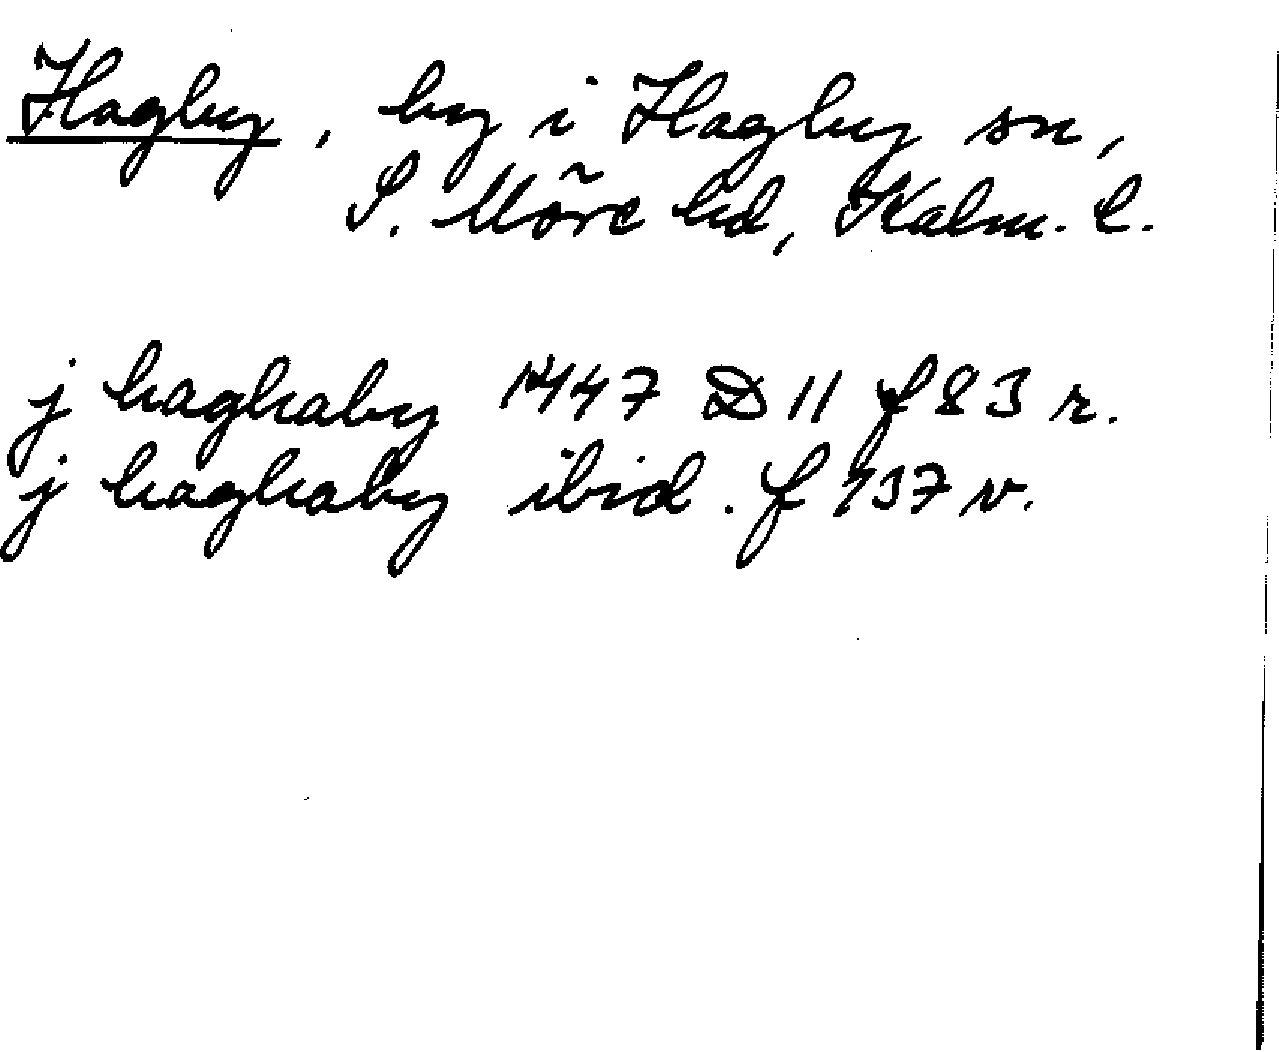 Hagby, by i Hagby sn,
S. Möre hd, Kalm. l.
j haghaby 1447 D 11 f 83 r.
j haghaby ibid. f 137 v.